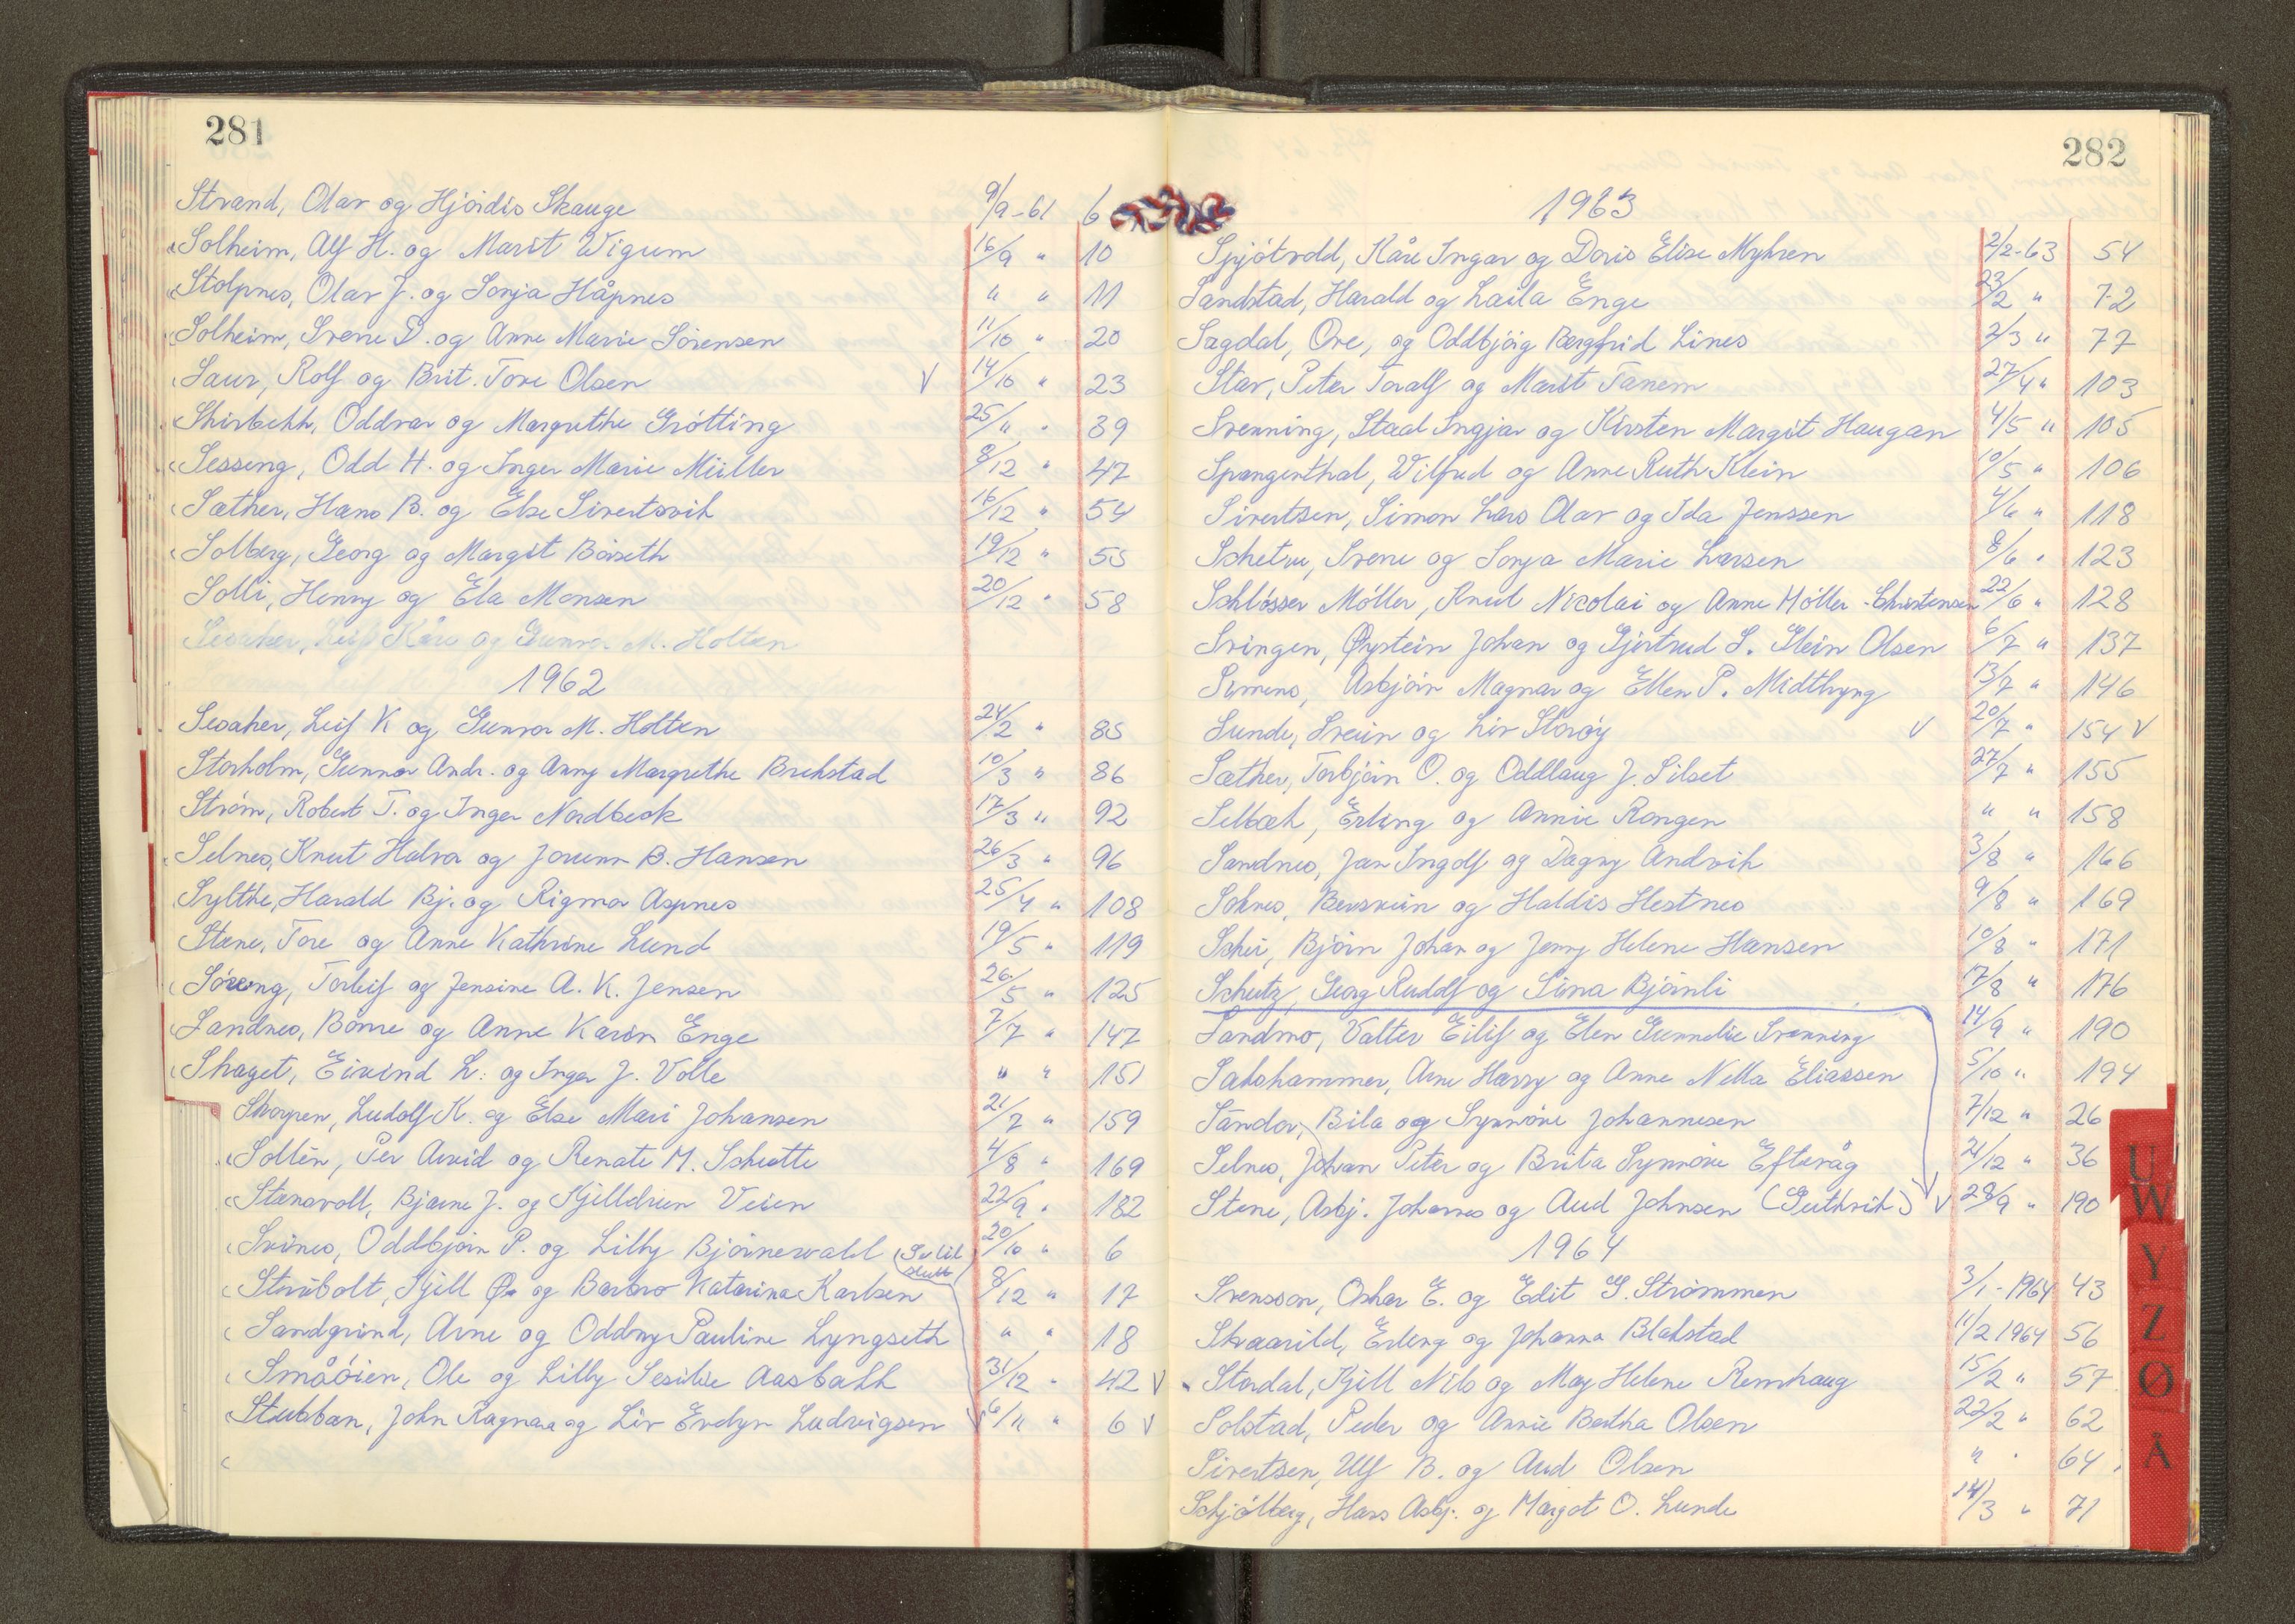 281
Strand, Olav og Hjördis Skauge 9/9-61 6
Solheim, Alf H. og Marit Wigum 16/9 " 10
Stolpnes, Olav J. og Sonja Håpnes " " 11
Solheim, Svene D. og Anne Marie Sörensen 11/10 " 20
Saur, Rolf og Brit. Tove Olsen V 14/10 " 23
Skirbekk, Oddvar og Margrethe Grötting 25/11 " 39
Sesseng, Odd H. og Inger Marie Müller 8/12 " 47
Sæther, Hans B. og Else Sivertsvik 16/12 " 54
Solberg, Georg og Margit Böiseth 19/12 " 55
Solli, Henny og Ela Monsen 20/12 " 58
Sesaker, Leif Kåre og Gunvor M. Holten
1962
Sesaker, Leif K og Gunvor M. Holten 24/2 " 85
Storholm, Gunnar Andr. og Anny Margrethe Brekstad 10/3 " 86
Ström, Robert T. og Inger Nordbeck 17/3 " 92
Selnes, Knut Halvor og Jorunn B. Hansen 26/3 " 96
Sylthe, Harald Bj. og Rigmor Aspnes 25/4 " 108
Stene, Tore og Anne Kathrine Lund 19/5 " 119
Söreng, Torleif og Jensine A. K. Jensen 26/5 " 125
Sandnes, Börre og Anne Karin Enge 7/7 " 147
Skaget, Eivind L. og Inger J. Volle " " 151
Skorpen, Ludolf K. og Else Mari Johansen 21/7 " 159
Sollén, Per Arvid og Renate M. Schütte 4/8 " 169
Stenavoll, Bjarne J. og Kjelldrun Veien 22/9 " 182
Svines, Oddbjörn P. og Lilly Björnewall 20/10 " 6
Strubolt, Kjell Ø. og Barbro Katarina Karlsen 8/12 " 17
Sandgrind, Arne og Oddny Pauline Lyngseth " " 18
Småöien, Ole og Lilly Sesilie Aasbakk 31/12 " 42 V
Stubban, John Ragnar og Liv Evelyn Ludvigsen V 6/11 " 6 V
282
1963
Spjötvold, Kåre Ingar og Doris Elise Myhren 2/2-63 54
Sandstad, Harald og Laila Enge 23/2 " 72
Sagdal, Ove, og Oddbjörg Bergfrid Lines 2/3 " 77
Stav, Peter Toralf og Marit Tanem 27/4 " 103
Svenning, Staal Ingjar og Kirsten Margit Haugan 4/5 " 105
Spangenthal, Wilfred og Anne Ruth Klein 10/5 " 106
Sivertsen, Simon Lars Olav og Ida Jenssen 4/6 " 118
Schetne, Svene og Sonja Marie Larsen 8/6 " 123
Schlösser Möller, Knut Nicolai og Anne Möller-Christensen 22/6 " 128
Svingen, Øystein Johan og Gjertrud S. Stein Olsen 6/7 " 137
Simenes, Asbjörn Magnar og Ellen P. Midtlyng 13/7 " 146
Sunde, Svein og Liv Storöy V 20/7 " 154 V
Sæther, Torbjörn O. og Oddlaug J. Silset 27/7 " 155
Selbæk, Erling og Annie Rongen " " 158
Sandnes, Jan Ingolf og Dagny Andvik 3/8 " 166
Soknes, Bersvein og Haldis Hestnes 9/8 " 169
Schei, Björn Johan og Jenny Helene Hansen 10/8 " 171
Schutz, Georg Rudolf og Sina Björnli 17/8 " 176
Sandmo, Valter Eilif og Elen Gunnelie Svenning 14/9 " 190
Sakshammer, Arne Harry og Anne Nella Eliassen 5/10 " 194
Sándor, Bila og Synnöve Johannesen 7/12 " 26
Selnes, Johan Peter og Brita Synnöve Efteråg 21/12 " 36
Stene, Asbj. Johannes og Aud Johnsen (Guthvik) V 28/9 " 190
1964
Svensson, Oskar E. og Edit G. Strömmen 3/1-1964 43
Skaarild, Erling og Johanna Blakstad 11/2 1964 56
Stordal, Kjell Nils og May Helene Remhaug 15/2 " 57
Solstad, Peder og Annie Bertha Olsen 22/2 " 62
Sivertsen, Ulf B. og Aud Olsen " " 64
Schjölberg, Hans Asbj. og Margot O. Lunde 14/3 " 71
U
W
Y
Z
Ø
Å